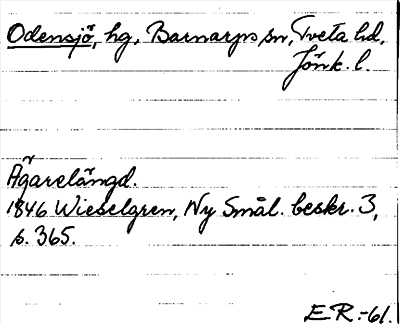 Odensjö, hg, Barnarps sn, Tveta hd,
Jönk. l.
Ägarelängd.
1846 Wieselgren, Ny Smål. beskr. 3,
s. 365.
E.R.-61.